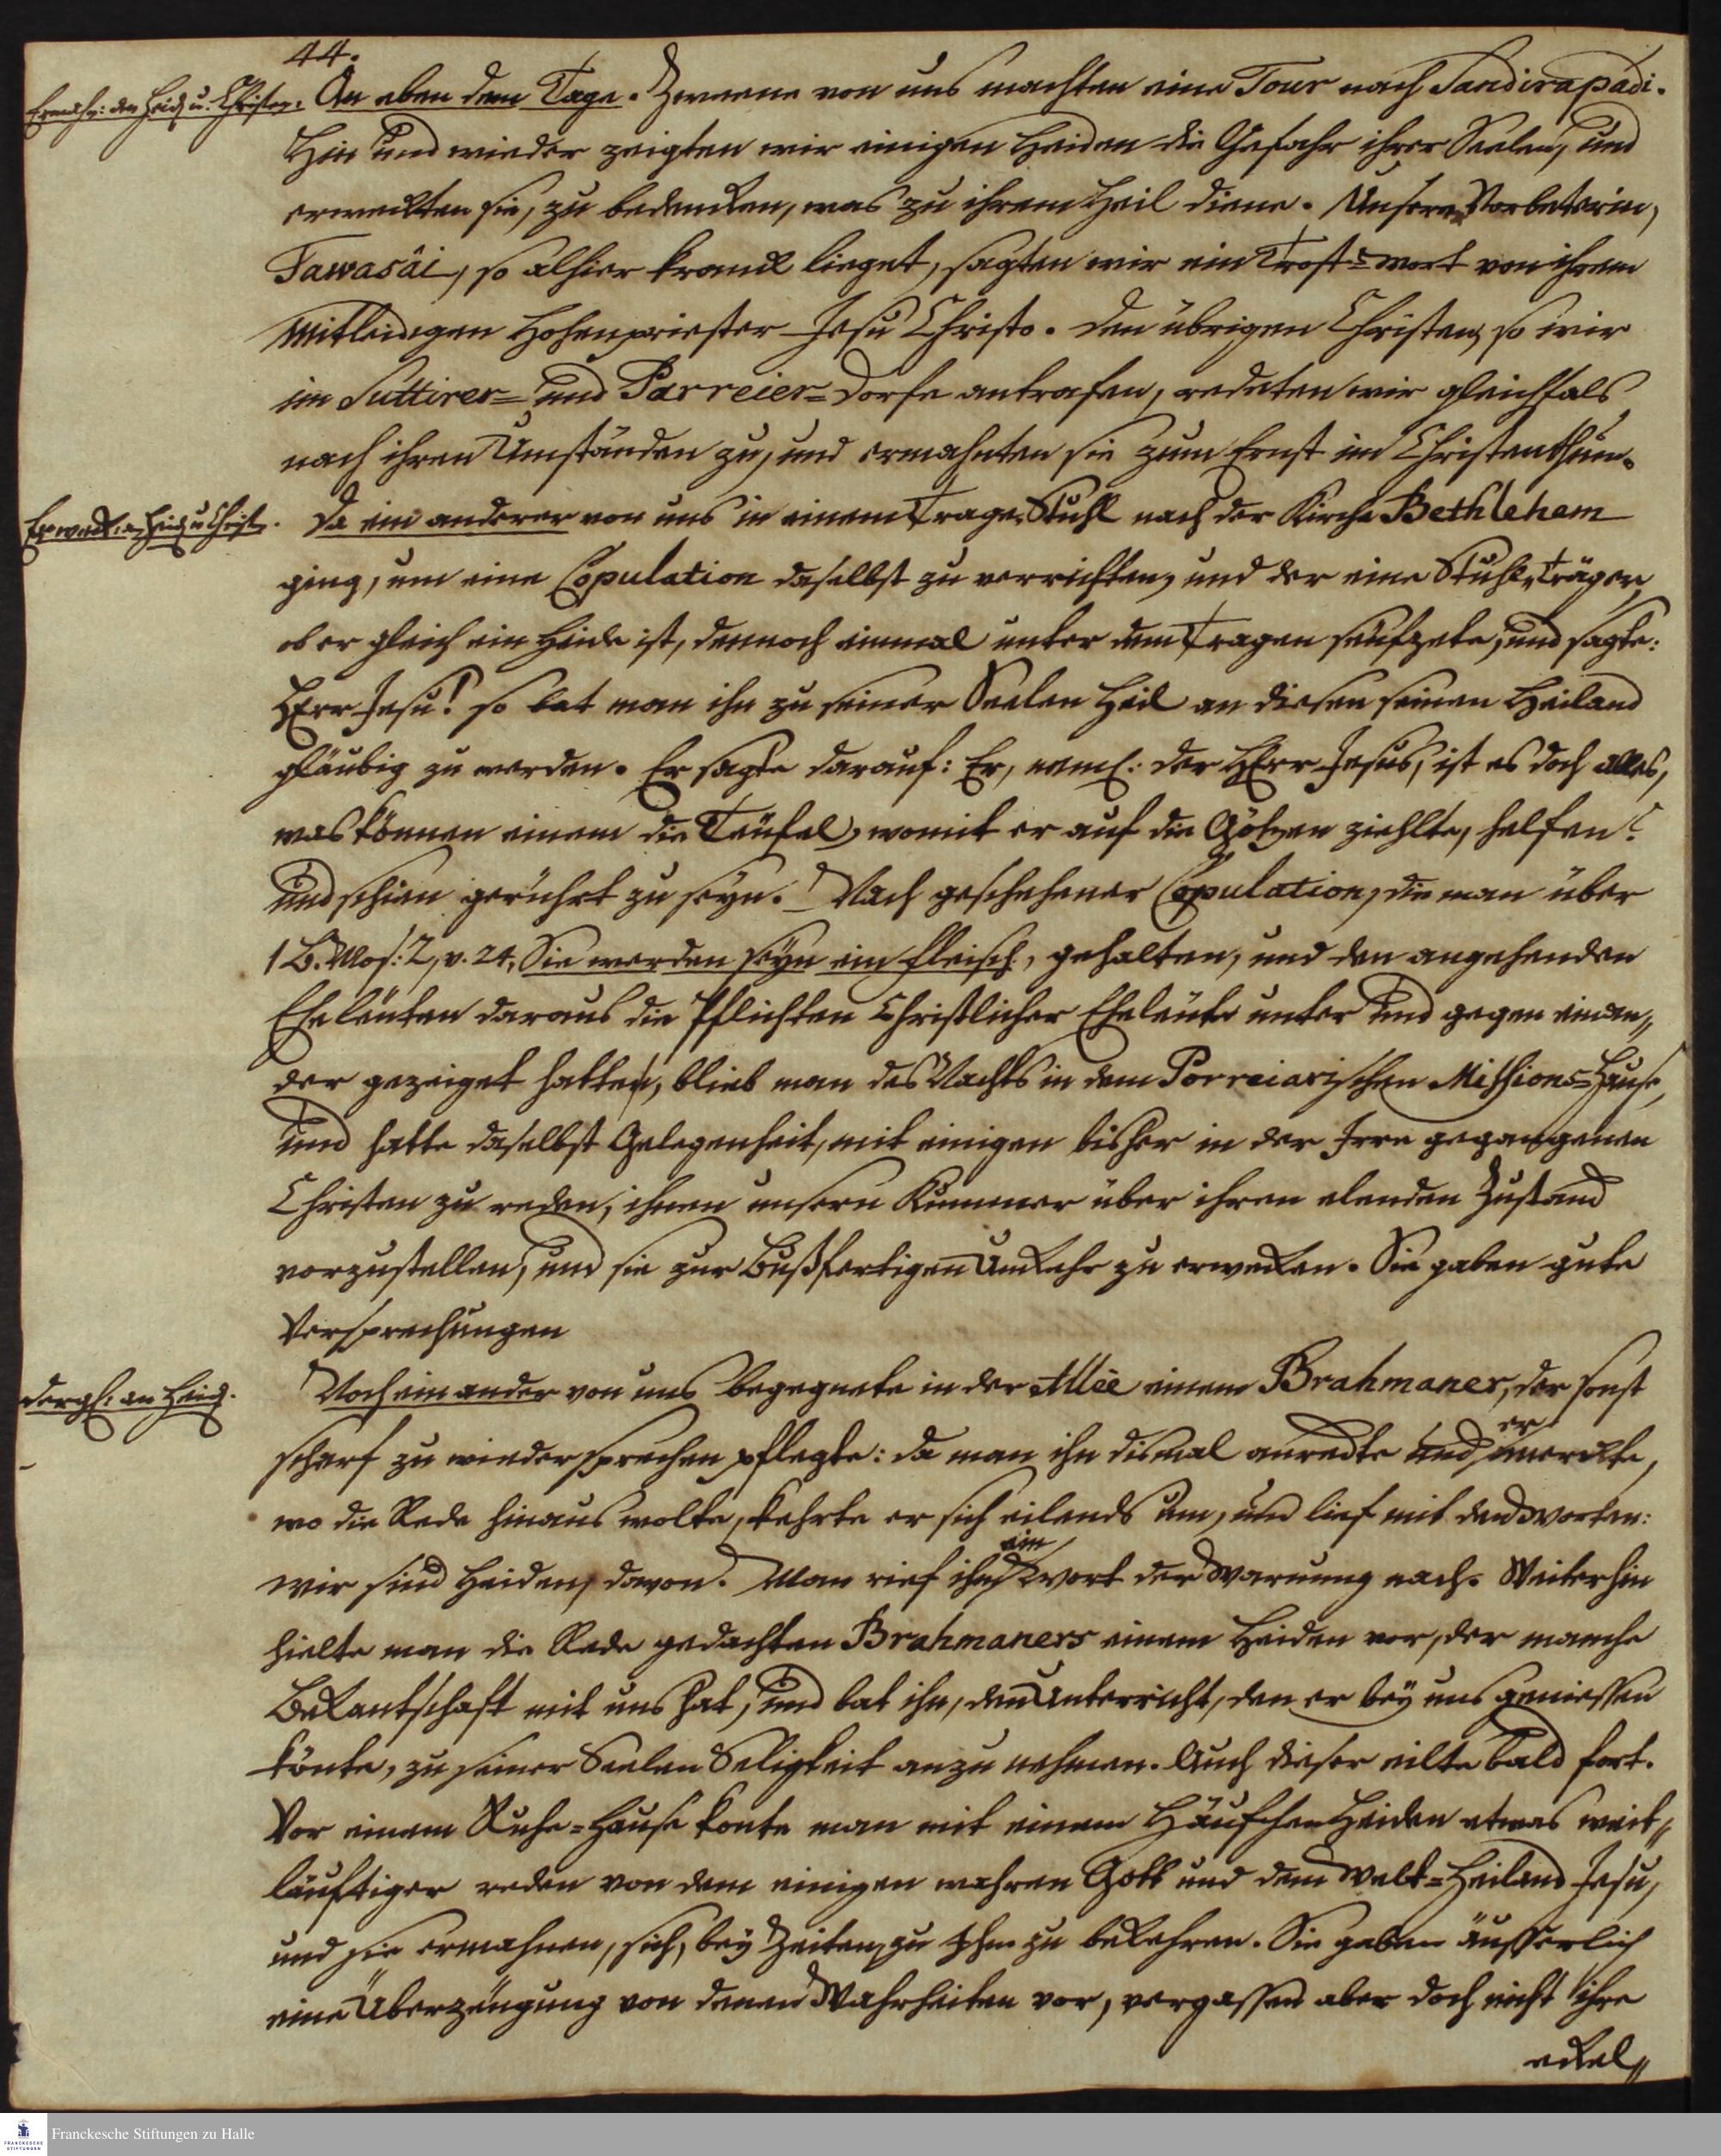 44.
Ermahn: der Heid: u. Christen. An eben dem Tage. Zweene von uns machten eine Tour nach Sandirapadi.
Hin und wieder zeigten wir einigen Heiden die Gefahr ihrer Seelen, und
erweckten sie, zu bedencken, was zu ihrem Heil diene. Unserer Vorbeterin,
Tawasâi, so alhier kranck lieget, sagten wir ein Trost-wort von ihrem
Mitleidigen Hohenpriester Jesu Christo. Den übrigen Christen, so wir
im Suttirer- und Parreier-Dorfe antrafen, redeten wir gleichfals
nach ihren Umständen zu, und ermahnten sie zum Ernst im Christenthum.
Erweck: an Heid: u Christ. Da ein anderer von uns in einem Trage-Stuhl nach der Kirche Bethlehem
ging, um eine Copulation daselbst zu verrichten, und der eine Stuhl-Träger,
ob er gleich ein Heide ist, dennoch einmal unter dem Tragen seufzete, und sagte:
HErr Jesu! so bat man ihn zu seiner Seelen Heil an diesen seinen Heiland
gläubig zu werden. Er sagte darauf: Er, neml: der HErr Jesus, ist es doch alles,
was können einem die Teüfel, womit er auf die Götzen ziehlte, helfen?
und schien gerührt zu seyn. Nach geschehener Copulation, die man über
1 B. Mos: 2, v. 24, Sie werden seyn ein Fleisch, gehalten, und den angehenden
Eheleuten daraus die Pflichten Christlicher Eheleute unter und gegen einan„
der gezeiget hatten, blieb man des Nachts in dem Porreiarischen Missions-Hause,
und hatte daselbst Gelegenheit, mit einigen bisher in der Irre gegangenen
Christen zu reden, ihnen unsern Kummer über ihren elenden Zustand
vorzustellen, und sie zur Bußfertigen Umkehr zu erwecken. Sie gaben gute
Versprechungen
dergl: an Heid. Noch ein ander von uns begegnete in der Allée einem Brahmaner, der sonst
scharf zu wiedersprechen pflegte: da man ihn dismal anredte und er merckte,
wo die Rede hinaus wolte, kehrte er sich eilends um, und lief mit den worten:
wir sind Heiden, davon. Man rief ihm ein Wort der Warnung nach. Weiterhin
hielte man die Rede gedachten Brahmaners einem Heiden vor, der manche
Bekantschaft mit uns hat, und bat ihn, den Unterricht, den er bey uns geniessen
könte, zu seiner Seelen Seligkeit anzunehmen. Auch dieser eilte bald fort.
Vor einem Ruhe-Hause konte man mit einem Häufchen Heiden etwas weit„
läuftiger reden von dem einigen wahren Gott und dem Welt-Heiland Jesu,
und sie ermahnen, sich, bey Zeiten, zu Ihm zu bekehren. Sie gaben äusserlich
eine Überzeugung von denen Wahrheiten vor, vergassen aber doch nicht ihre
eckel„
Franckesche Stiftungen zu Halle
FRANCKESCHE
STIFTUNGEN